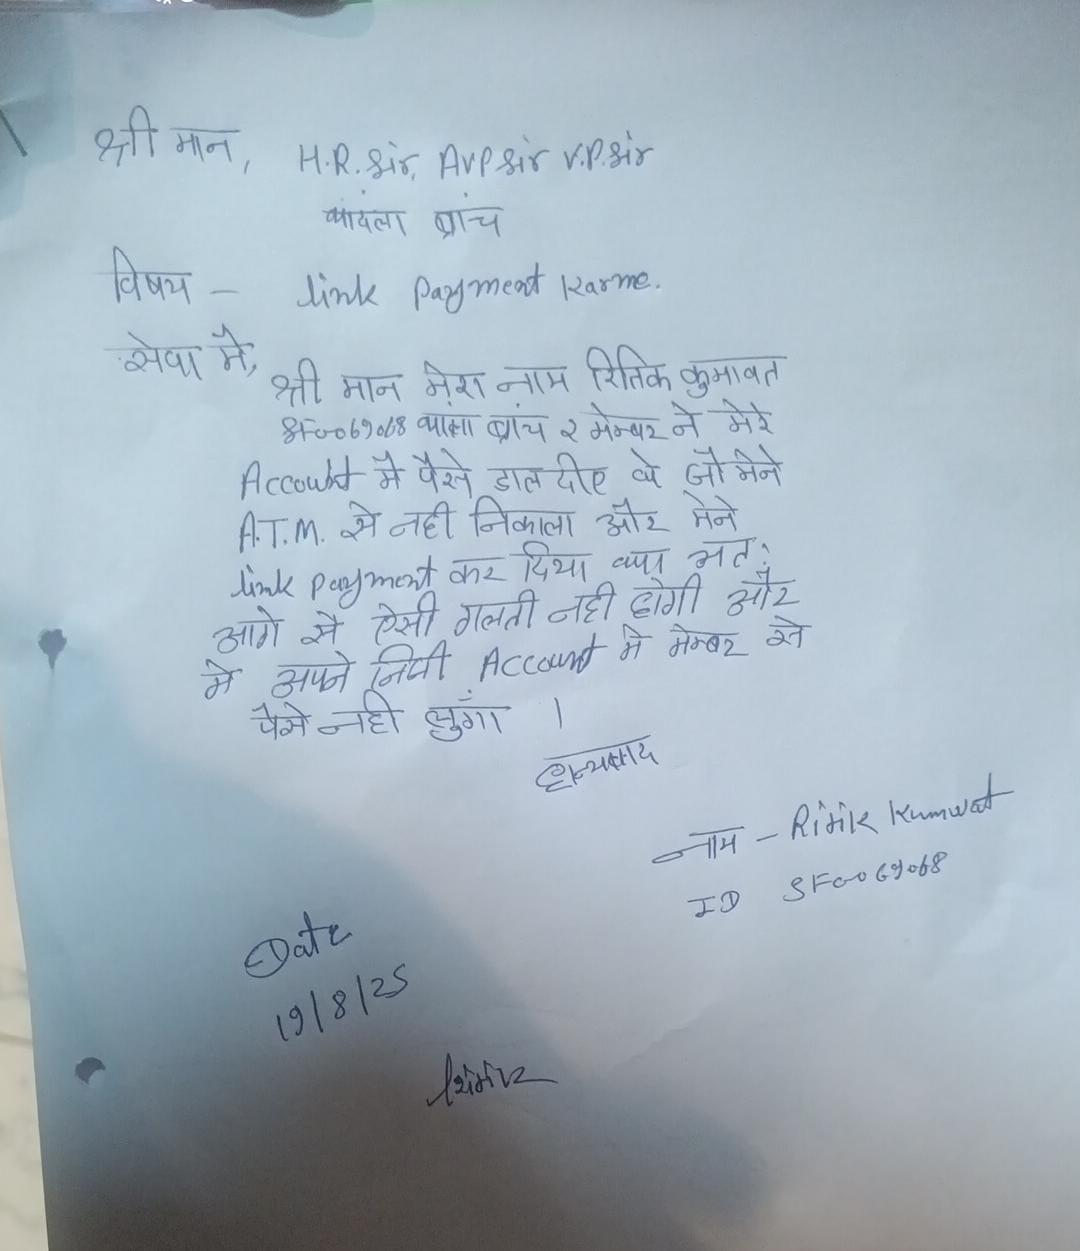 श्री मान, H.R. Sir, AVP Sir V.P. Sir
ब्रांच
विषय - link payment karne.
सेवा मै,
श्री मान मेरा नाम रितिक कुमावत
SF0069068 ब्रांच २ मेम्बर ने मेरे
Account मै पैसे डाल दीए थे जो मेने
A.T.M. से नही निकाला और मेने
link payment कर दिया था अत:
आगे से ऐसी गलती नही होगी और
मे अपने निजी Account मे मेम्बर से
पैसे नही लुँगा ।
धन्यवाद
नाम - Ritik Kumwat
ID SF0069068
Date
19/8/25